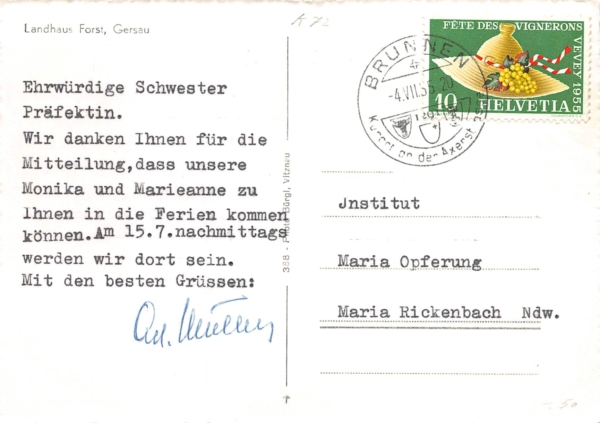 Landhaus Forst, Gersau
K 72
FÊTE DES VIGNERONS
VEVEY 1955
10 HELVETIA
BRUNNEN
-4.VII.55.20
Kurort an der Axenstr.
Ehrwürdige Schwester
Präfektin.
Wir danken Ihnen für die
Mitteilung,dass unsere
Monika und Marieanne zu
Ihnen in die Ferien kommen
können.Am 15.7.nachmittags
werden wir dort sein.
Mit den besten Grüssen:
388 - Photo Bürgi, Vitznau
Jnstitut
Maria Opferung
Maria Rickenbach Ndw.
-.50